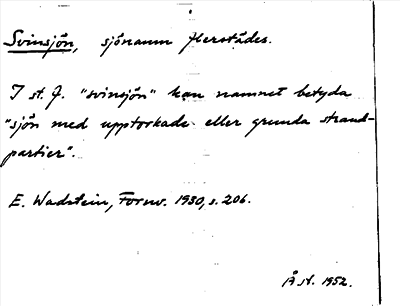 Svinsjön, sjönamn flerstädes.
I st. f. "svinsjön" kan namnet betyda
"sjön med upptorkade eller grunda strand-
partier".
E. Wadstein, Fornv. 1930, s. 206.
Å st. 1952.